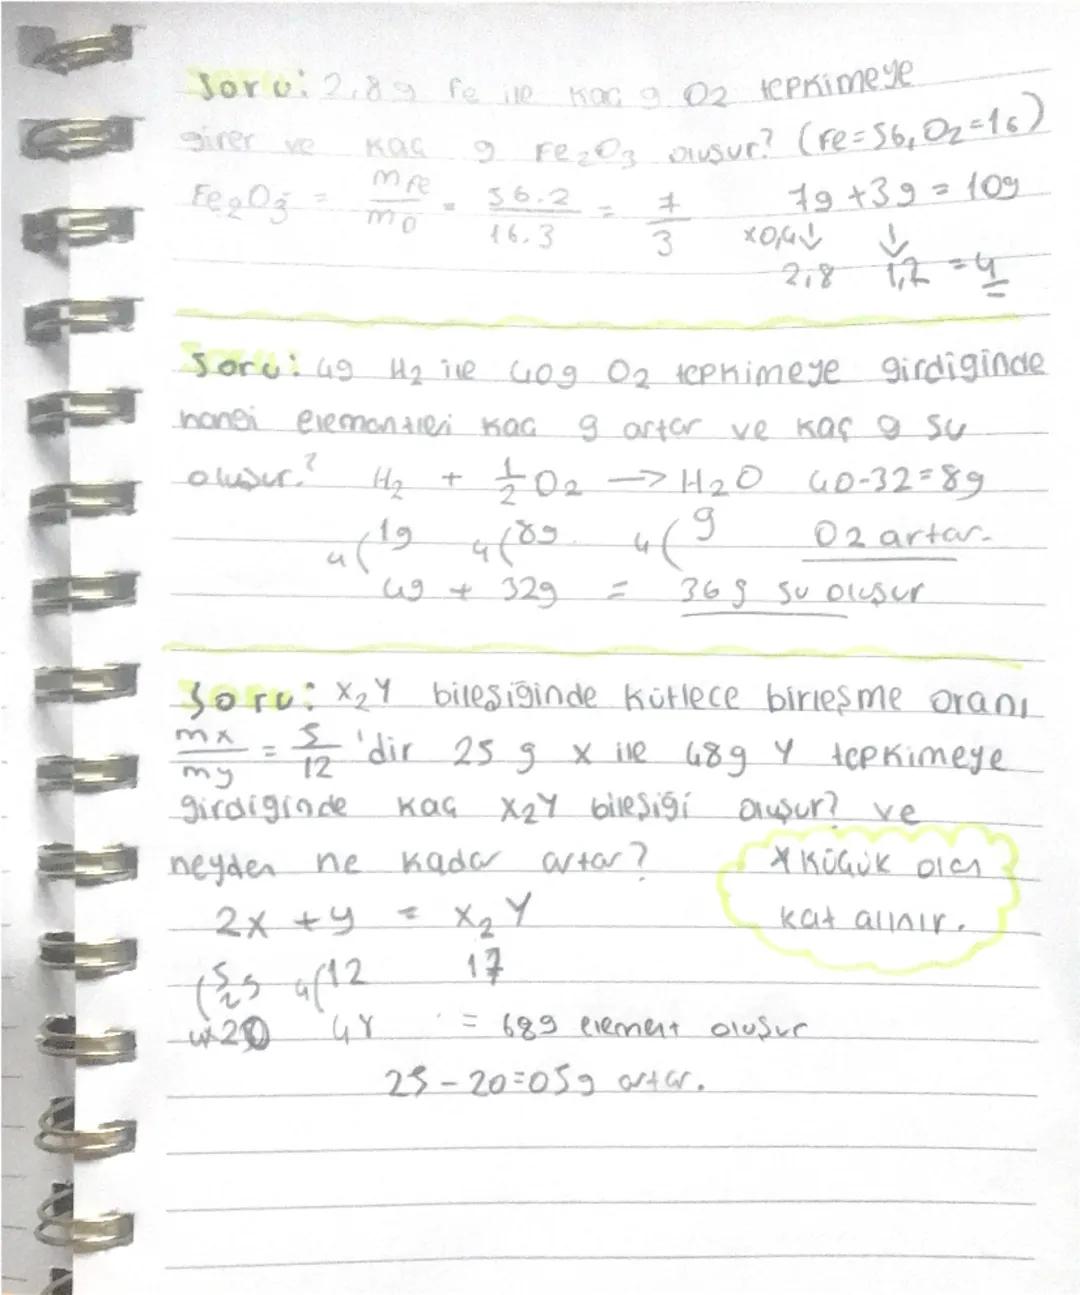 Soru: 2,8 g Fe ile kaç g O2 tepkimeye
girer ve kaç g Fe2O3 oluşur? (Fe=56, O2=16)
Fe2O3 = mFe/mO = 56.2/16.3 = 7/3 7g + 3g = 10g
x0,4↓ ↓
2,8 1,2 = 4
Soru: 4g H2 ile 40g O2 tepkimeye girdiginde
hangi elementleri kaç g artar ve kaç g su
oluşur? H2 + 1/2 O2 → H2O 40-32=8g
4( 1g 4( 8g 4( 9 O2 artar.
4g + 32g = 36g su oluşur
Soru: X2Y bileşiğinde kütlece birleşme oranı
mx/my = 5/12 'dir 25 g x ile 48g Y tepkimeye
girdiginde kaç X2Y bileşiği oluşur? ve
neyden ne kadar artar?
* Küçük olan
kat alınır.
2x + y = X2Y
(5 4(12 17
25
4x20 = 68g element oluşur
25-20=05g artar.